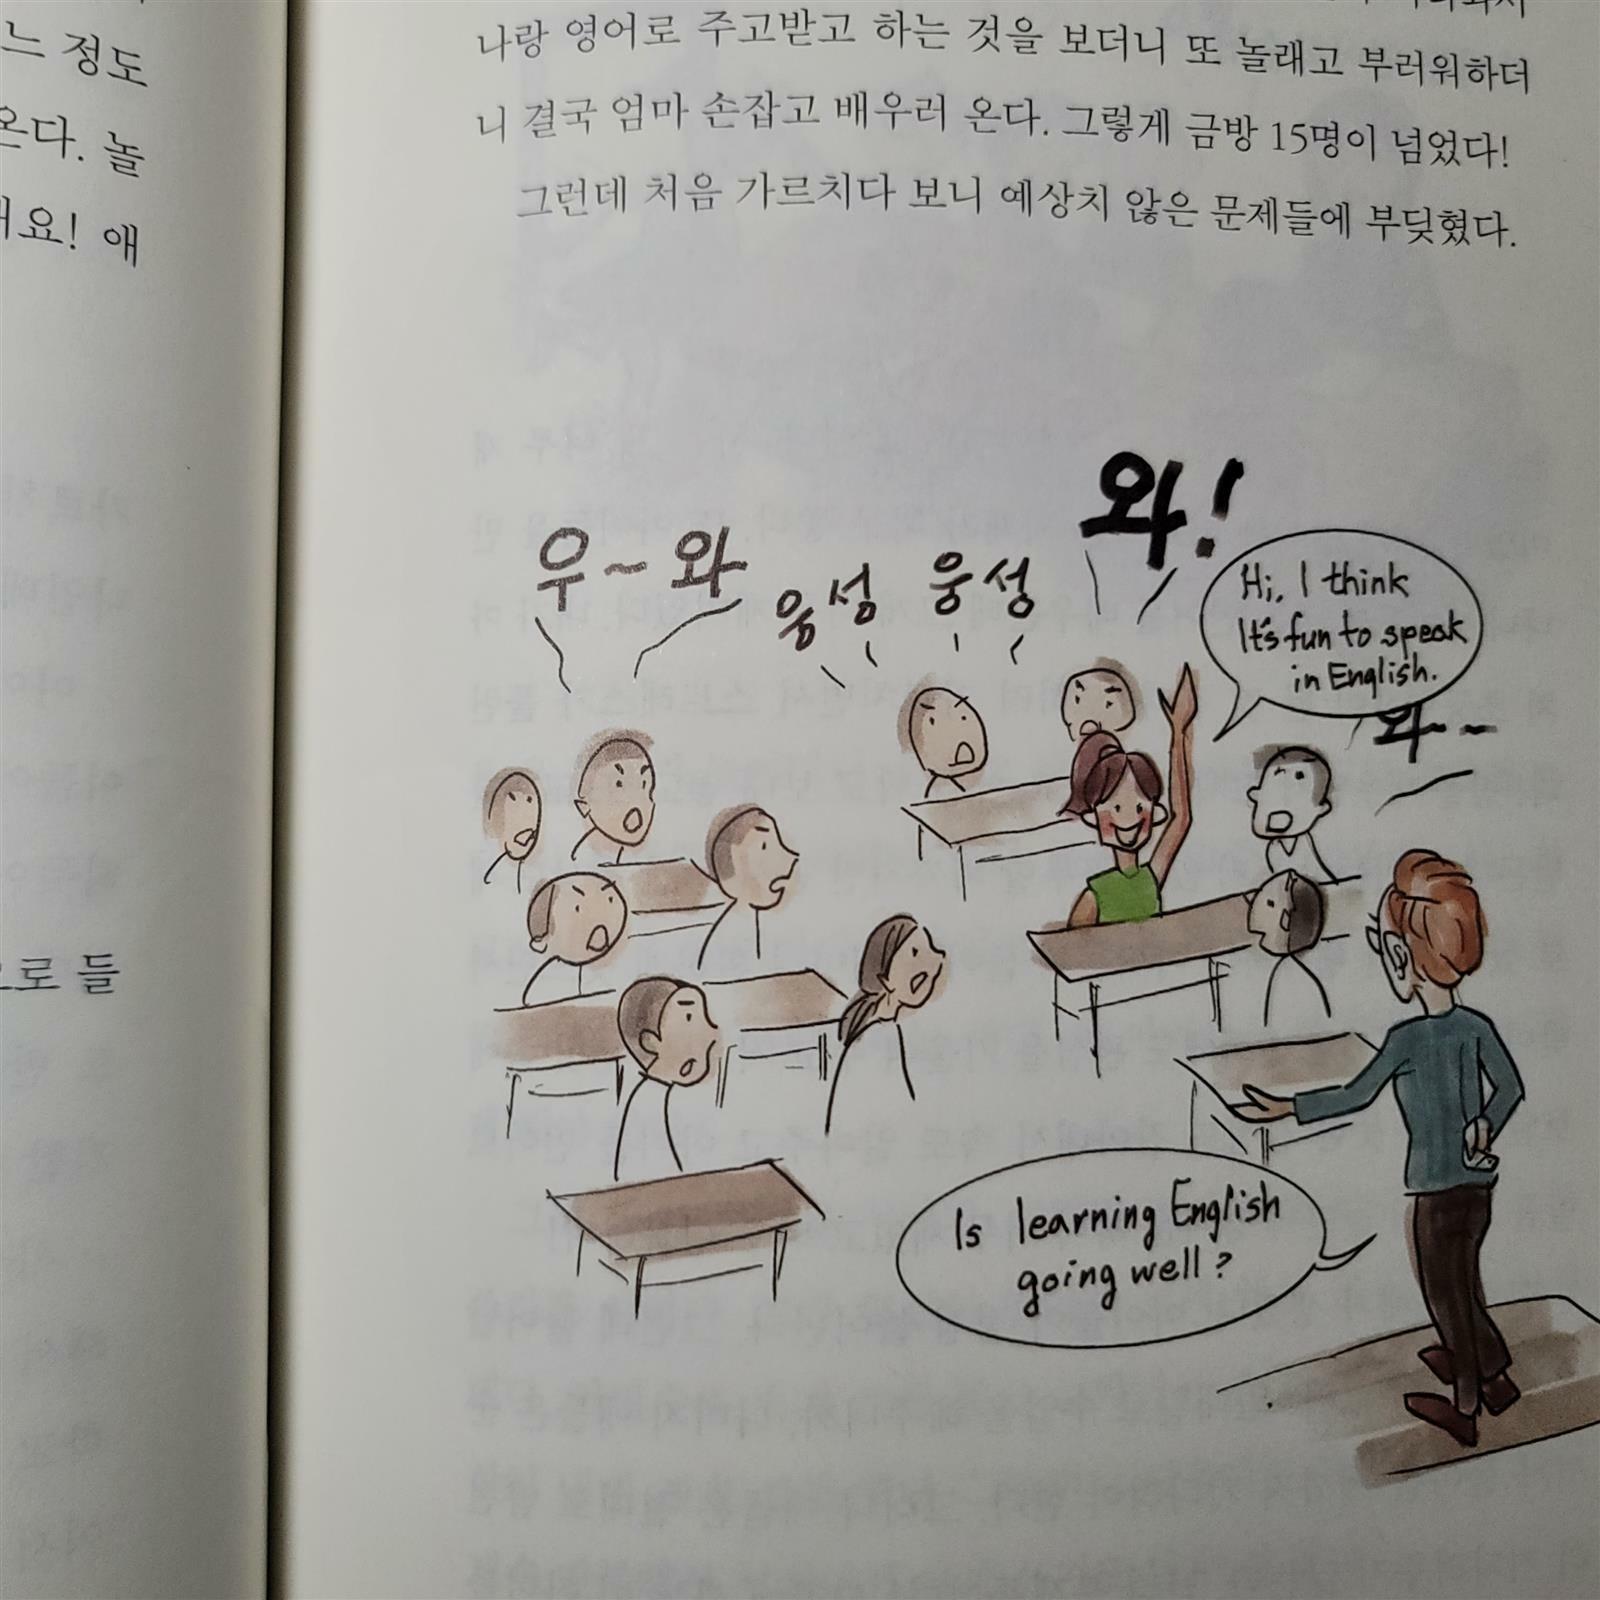 느 정도
온다. 놀
요! 애
으로 들
나랑 영어로 주고받고 하는 것을 보더니 또 놀래고 부러워하더
니 결국 엄마 손잡고 배우러 온다. 그렇게 금방 15명이 넘었다!
그런데 처음 가르치다 보니 예상치 않은 문제들에 부딪혔다.
우~와
웅성 웅성
와!
Hi, I think
It's fun to speak
in English.
와~~
Is learning English
going well?